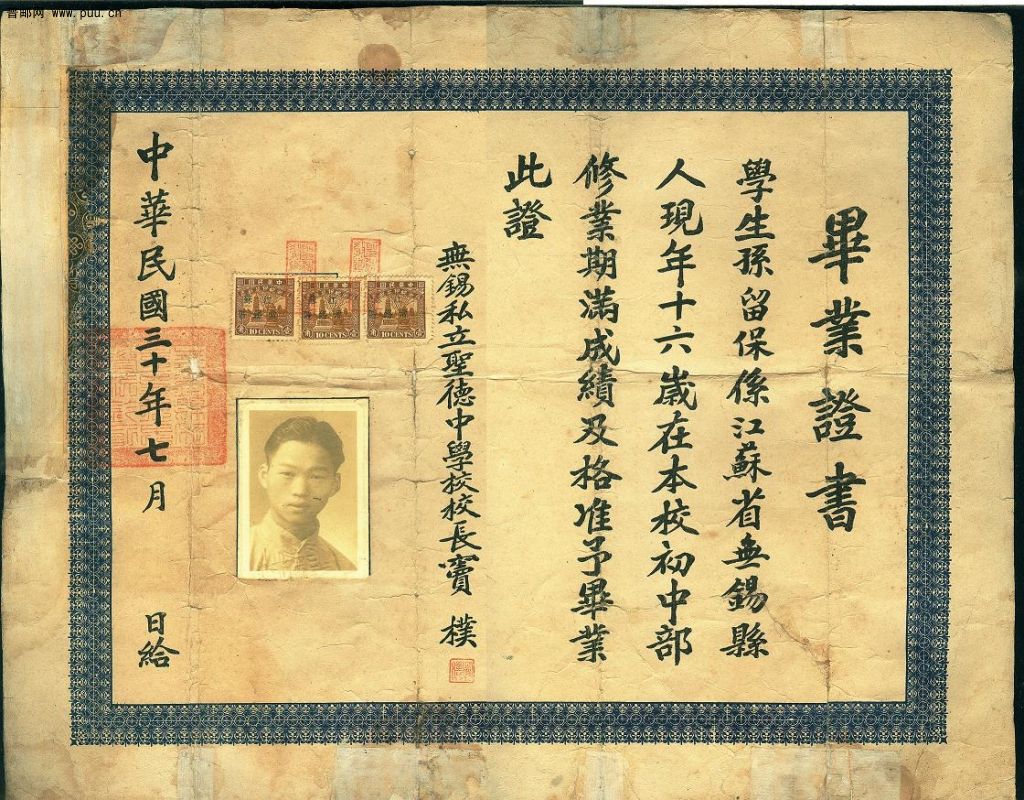 畢業證書
學生孫留保係江蘇省無錫縣
人現年十六歲在本校初中部
修業期滿成績及格准予畢業
此證
無錫私立聖德中學校校長竇 樸
中華民國三十年七月 日給
10 CENTS
10 CENTS
10 CENTS
www.puu.cn